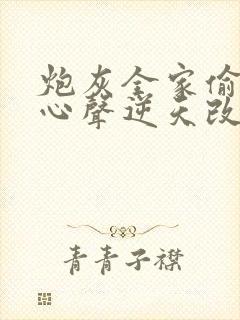 炮灰全家偷
心聲逆天改
青青子襟